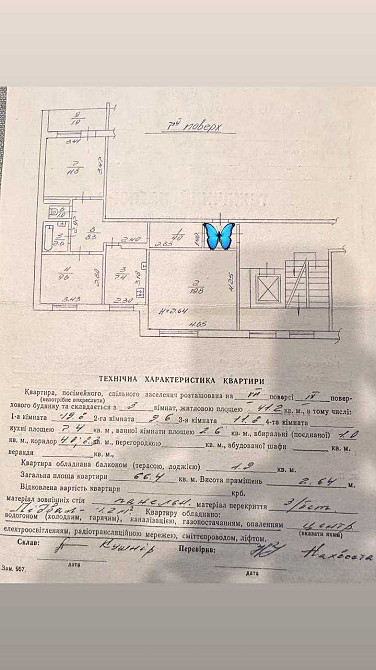 7й поверх
9
1.9
3.41
7
11.8
3.47
8
2.6
6
8.5
2.40
1
4.0
2.85
4
9.6
2.80
3.43
3
7.4
3.10
2.30
2
19.8
H=2.64
4.25
4.65
ТЕХНІЧНА ХАРАКТЕРИСТИКА КВАРТИРИ
Квартира, посімейного, спільного заселення розташована на VII поверсі IX повер-
(непотрібне викреслити)
хового будинку та складається з 3 кімнат, житловою площею 41.2 кв. м., в тому числі:
1-а кімната 19.8 2-га кімната 9.6 3-я кімната 11.8 4-та кімната
кухні площею 7.4 кв. м., ванної кімнати площею 2.6 кв. м., вбиральні (поєднаної) 1.0
кв. м., коридор 4.0; 8.5 м., перегородною кв. м., вбудованої шафи кв. м.,
веранди кв. м.,
Квартира обладнана балконом (терасою, лоджією) 1.9 кв. м.
Загальна площа квартири 66.4 кв. м. Висота приміщень 2.64 м.
Відновлена вартість квартири крб.
матеріал зовнішніх стін панельн. матеріал перекриття з/бет
Підвал - 4.2 м² Квартиру обладнано:
водогоном (холодним, гарячим), каналізацією, газопостачанням, опаленням центр
(вказати який)
електроосвітленням, радіотрансляційною мережею, сміттєпроводом, ліфтом.
Склав: Кушнір Перевірив:
дата дата
Зам. 967.